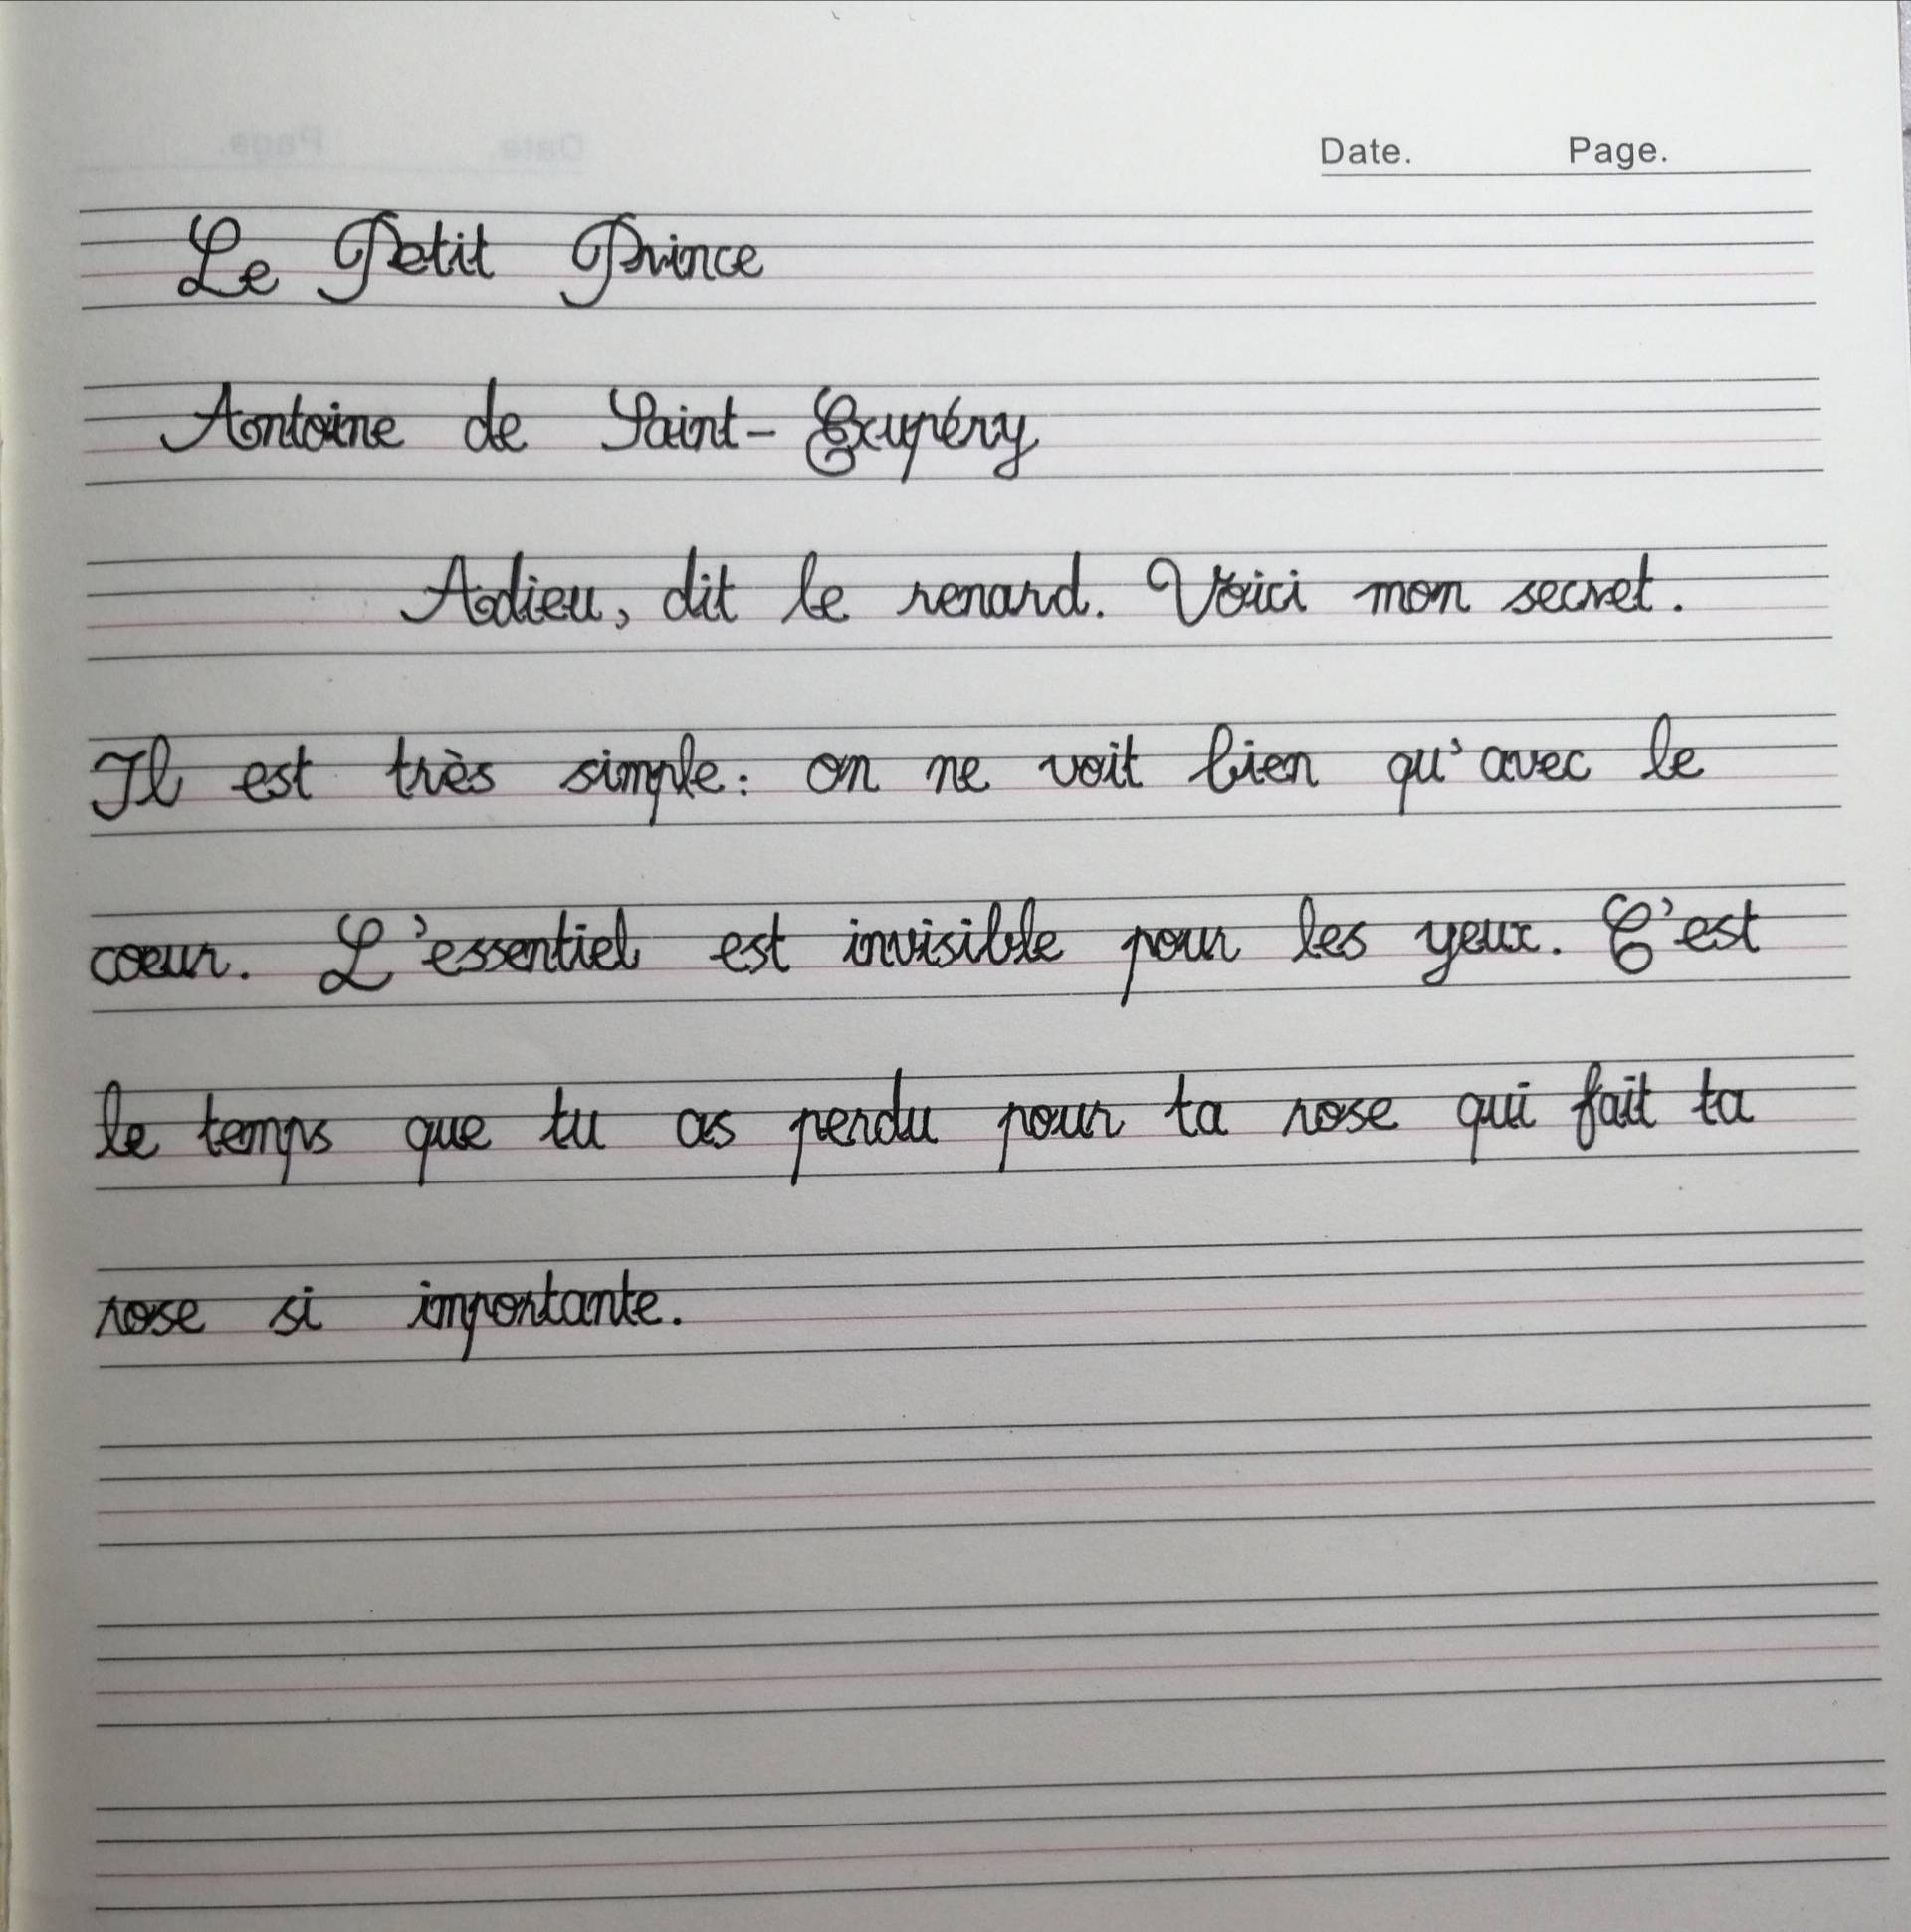 Date. Page.
Le Petit Prince
Antoine de Saint-Exupéry
Adieu, dit le renard. Voici mon secret.
Il est très simple: on ne voit bien qu'avec le
coeur. L'essentiel est invisible pour les yeux. C'est
le temps que tu as perdu pour ta rose qui fait ta
rose si importante.